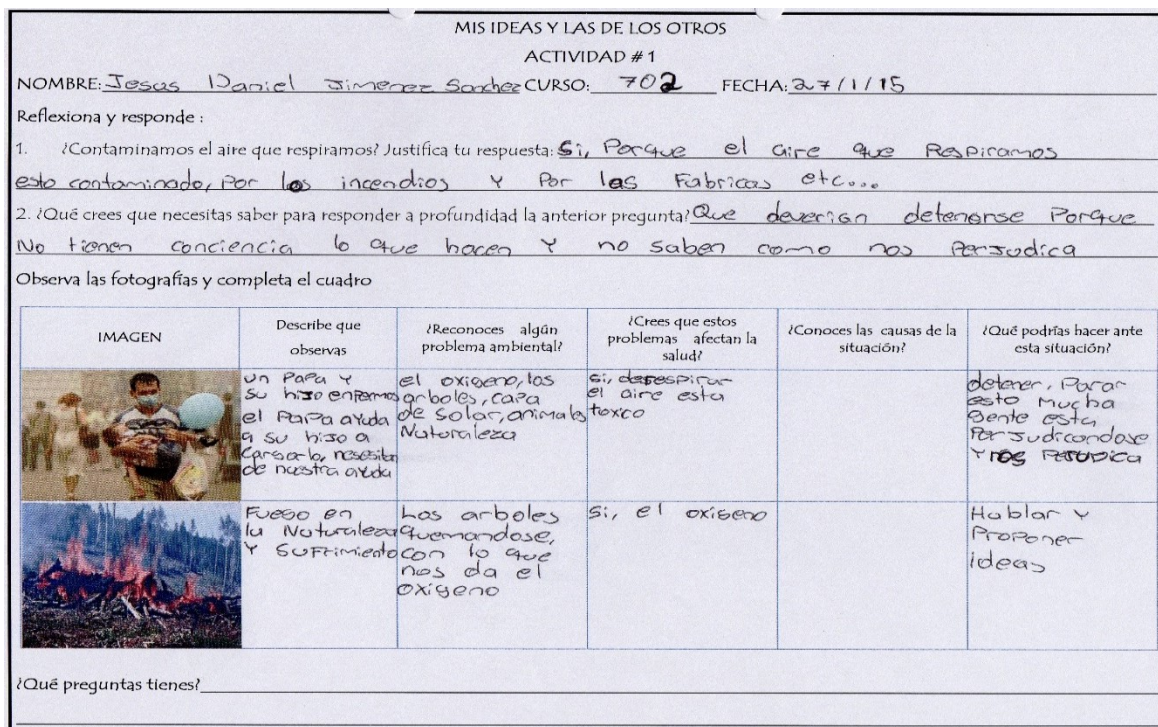 MIS IDEAS Y LAS DE LOS OTROS
ACTIVIDAD # 1
NOMBRE: Jesus Daniel Jimenez Sanchez CURSO: 702 FECHA: 27/1/15
Reflexiona y responde :
1. ¿Contaminamos el aire que respiramos? Justifica tu respuesta: Si, Porque el aire que Respiramos
esto contaminado, Por los incendios Y Por las Fabricas etc...
2. ¿Qué crees que necesitas saber para responder a profundidad la anterior pregunta? Que deverian detenerse Porque
No tienen conciencia lo que hacen Y no saben como nos Perjudica
Observa las fotografías y completa el cuadro
IMAGEN
Describe que
observas
¿Reconoces algún
problema ambiental?
¿Crees que estos
problemas afectan la
salud?
¿Conoces las causas de la
situación?
¿Qué podrías hacer ante
esta situación?
un Papa Y
su hijo enfermos
el Papa ayuda
a su hijo a
Cargarlo, necesitan
de nuestra ayuda
el oxigeno, los
arboles, capa
de Solar, animales
Naturaleza
si, respirar
el aire esta
toxco
detener, Parar
esto Mucha
Gente esta
Perjudicandose
Y nos
Fuego en
la Naturaleza
Y Sufrimiento
Los arboles
quemandose,
con lo que
nos da el
oxigeno
Si, el oxigeno
Hablar Y
Proponer
ideas
¿Qué preguntas tienes?